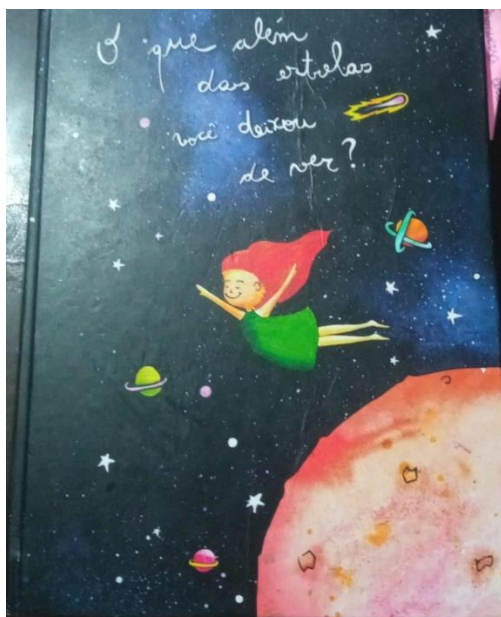 O que além
das estrelas
você deixou
de ver?